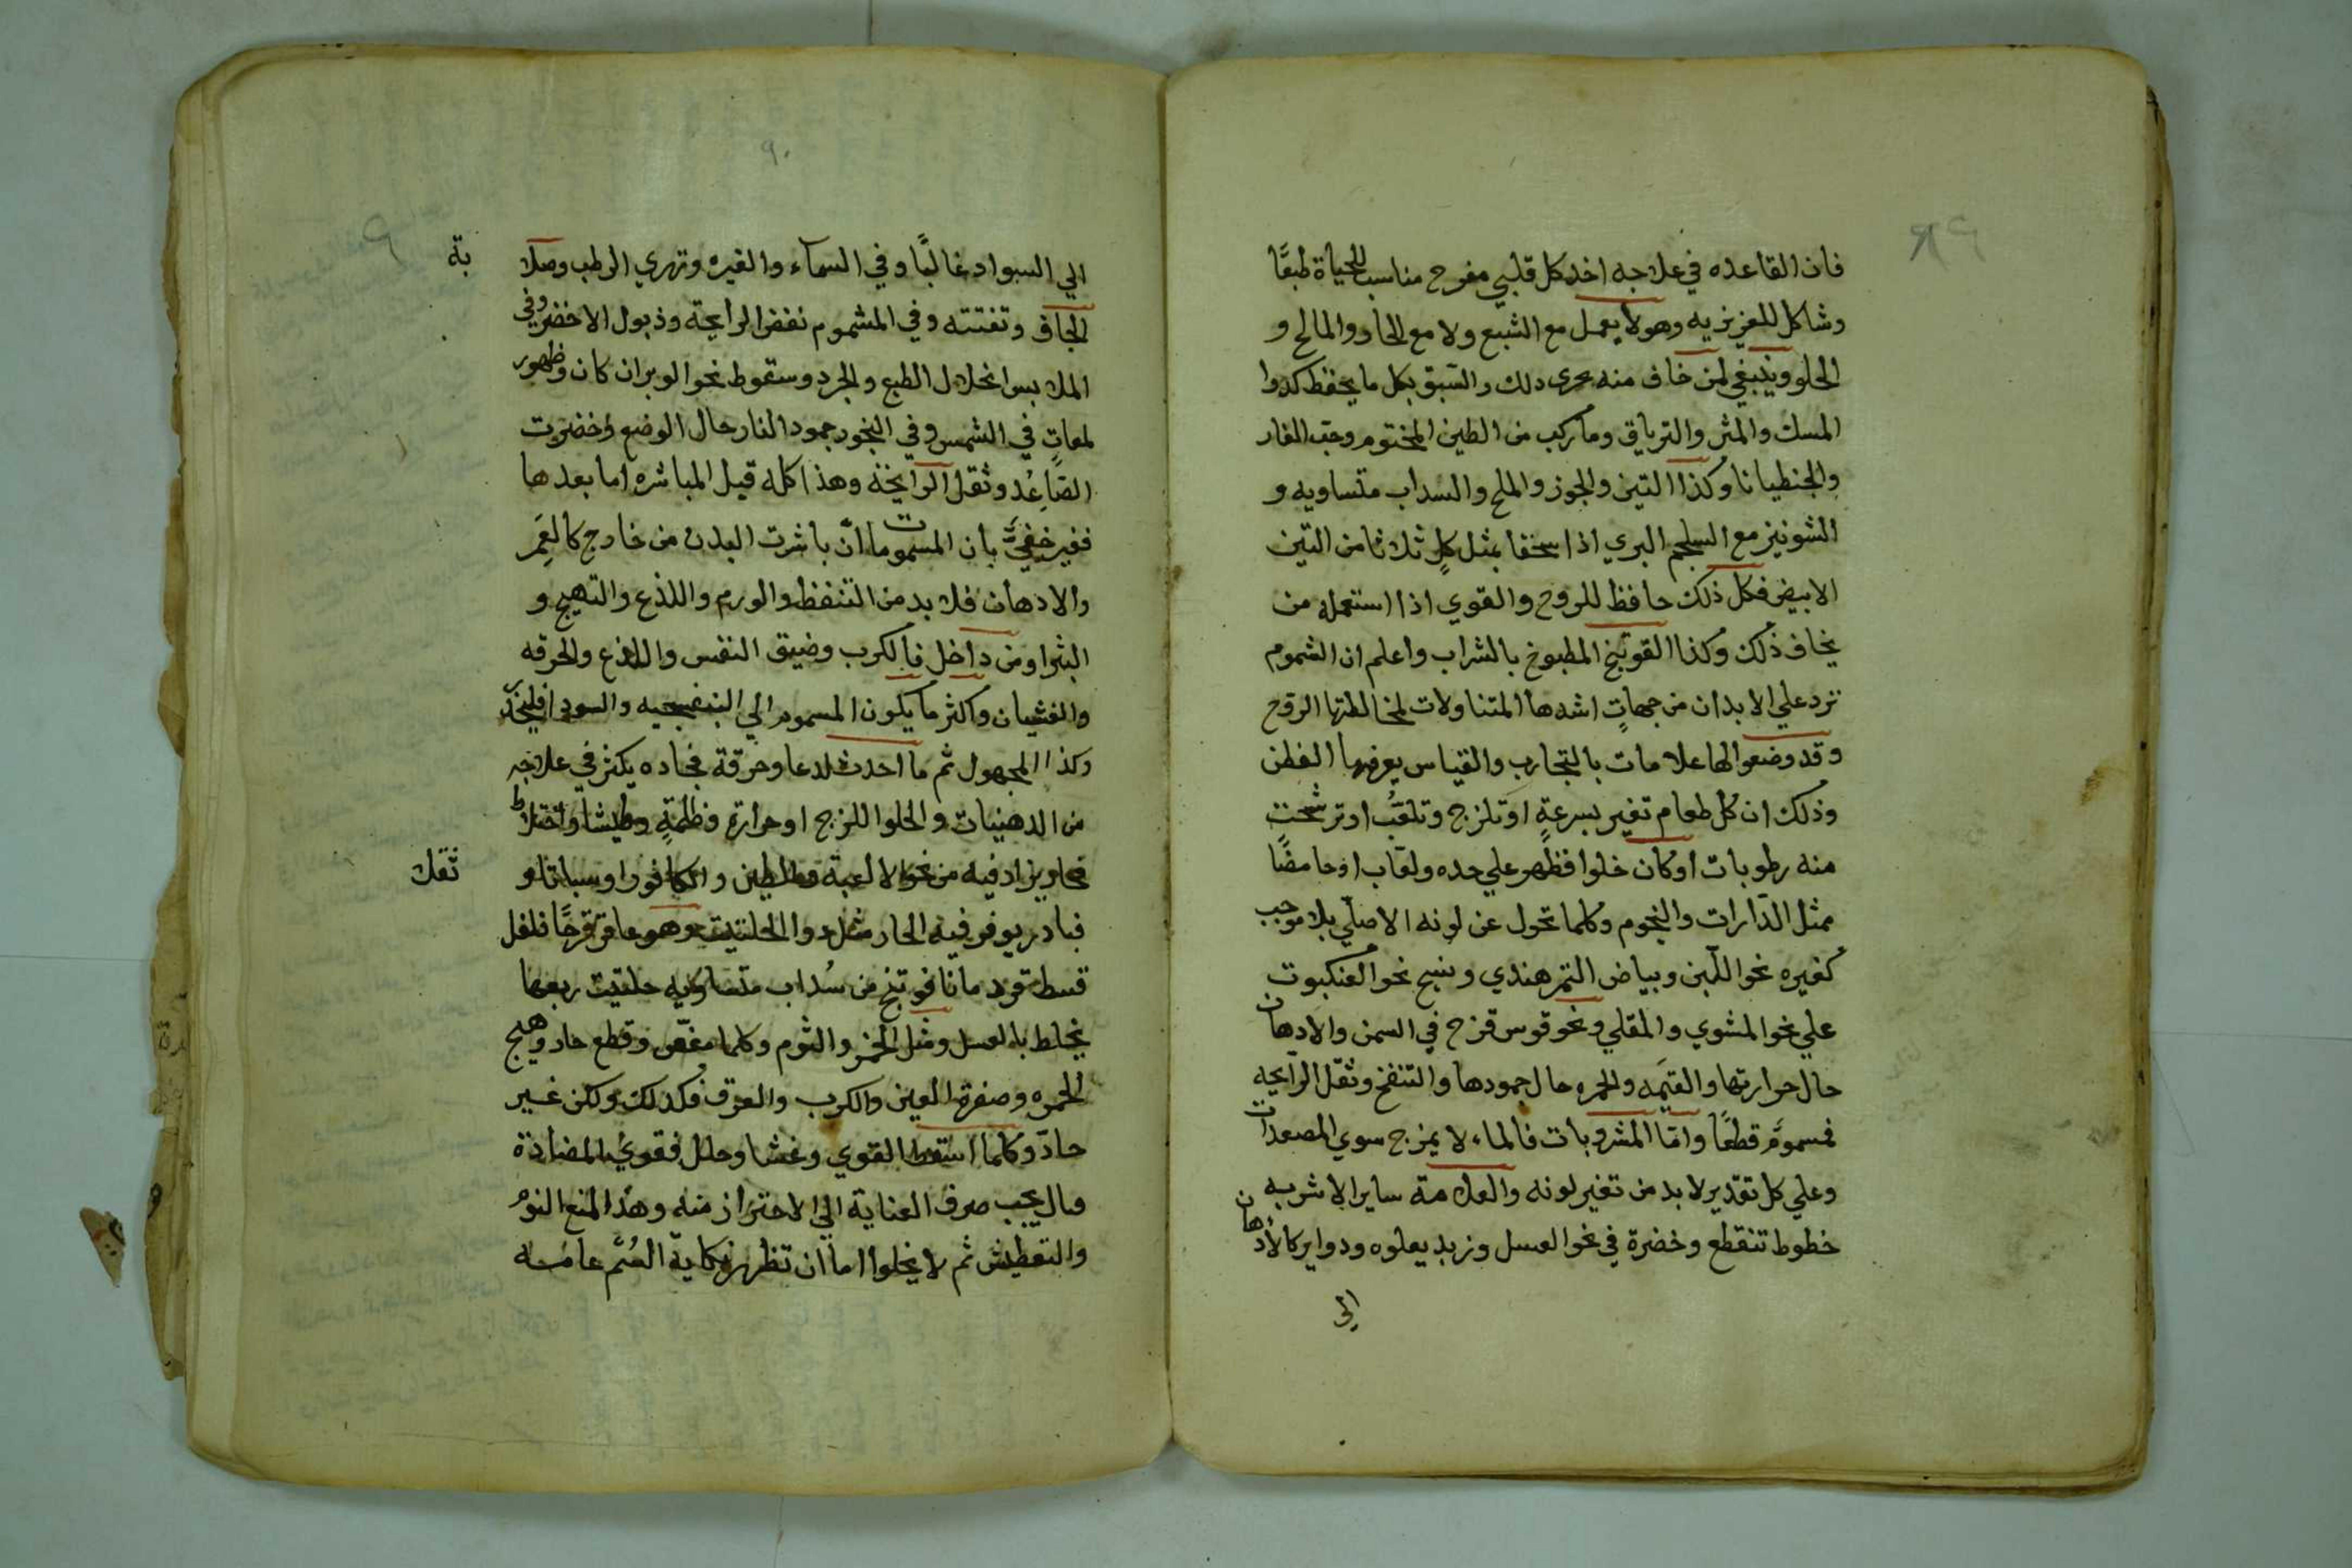 ٨٩
فان القاعده في علاجه اخد كل قلبي مفرح مناسب للحياة طبعًا
وشاكل للغريزيه وهو لا يعمل مع الشبع ولا مع الحار والمالح و
الحلو وينبغي لمن خاف منه تحرى دلك والسّبق بكل ما يحفظ كدوا
المسك والمثر والترياق وما ركب من الطين المختوم وحب الغار
والجنطيانا وكذا التين والجوز والملح والسداب متساويه و
الشونيز مع السلجم البري اذا سحقا بمثل كلٍ ثلاثا من التين
الابيض فكل ذلك حافظ للروح والقوي اذا استعمله من
يخاف ذلك وكذا القوتنج المطبوخ بالشراب واعلم ان الشموم
ترد علي الابدان من جهاتٍ اشدها المتناولات لمخالطتها الروح
وقد وضعوا لها علامات بالتجارب والقياس يعرفها الفطن
وذلك ان كل طعام تغير بسرعةٍ او تلزج وتلعّب او ترشحت
منه رطوبات او كان خلوا فظهر علي حده ولعاب او حامضًا
مثل الدّارات والنجوم وكلما تحول عن لونه الاصلّي بلا موجب
كغيره نحو اللّبن وبياض التمر هندي ونسج نحو العنكبوت
علي نحو المشوي والمقلي ونحو قوس قزح في السمن والادهان
حال حرارتها والقيمَه والحمره حال جمودها والتنفخ وثقل الرّايحه
فمسمومٌ قطعًا وامّا المشروبات فالماء لا يمزج سوي المصعدات
وعلي كل تقدير لا بد من تغير لونه والعلامة ساير الاشربه
خطوط تنقطع وخضرة في نحو العسل وزبد يعلوه ودواير كالادهان
الي
٩٠
الي السواد غالبًا وفي السماء والغيره وتهري الرطب وصلا
بة
الجاف وتفتته وفي المشموم نقض الرايحة وذبول الاخضر وفي
الملابس انحلال الطبع والجرد وسقوط نحو الوبر ان كان وظهور
لمعات في الشمس وفي البخور جمود النار حال الوضع وخضرت
الصّاعِد وثقل الرايحة وهذا كله قبل المباشره اما بعدها
فغير خفيّ بان المسمومات انّ باشرت البدن من خارج كالغمر
والادهان فلا بد من التنفظ والورم واللذع والتهيج و
البثر او من داخل فالكرب وضيق النفس واللذع والحرقه
والغشيان واكثر ما يكون المسموم الي البنفسجيه والسود افليحذر
وكذا المجهول ثم ما احدث لدعا وحرقة فحاده يكثر في علاجه
من الدهنيات والحلو اللزج او حرارة وظلمةٍ وطيشا واختلاط
فحار يزاد فيه من نحو الالعبة والطين والكافور او سباتا و
ثقلا
فبادر يوفر فيه الحار مثل دوا الحلتيت وهو عاقر قرحًا فلفل
قسط قردمانا فوتنج من سُداب متساويه حلتيت ربعها
يخلط بالعسل ومثل الخمر والثوم وكلما مغّص وقطع حاد وهيج
الحمره وصفرة العين والكرب والعرق فكدلك ولكن غير
حادّ وكلما اسقط القوي وغشا وحلل فقويُ المضادة
يجب صرف العناية الي الاحتراز منه وهذا المنع النوم
والتعطيش ثم لا يخلوا اما ان تظهر نكاية السُمّ عامه